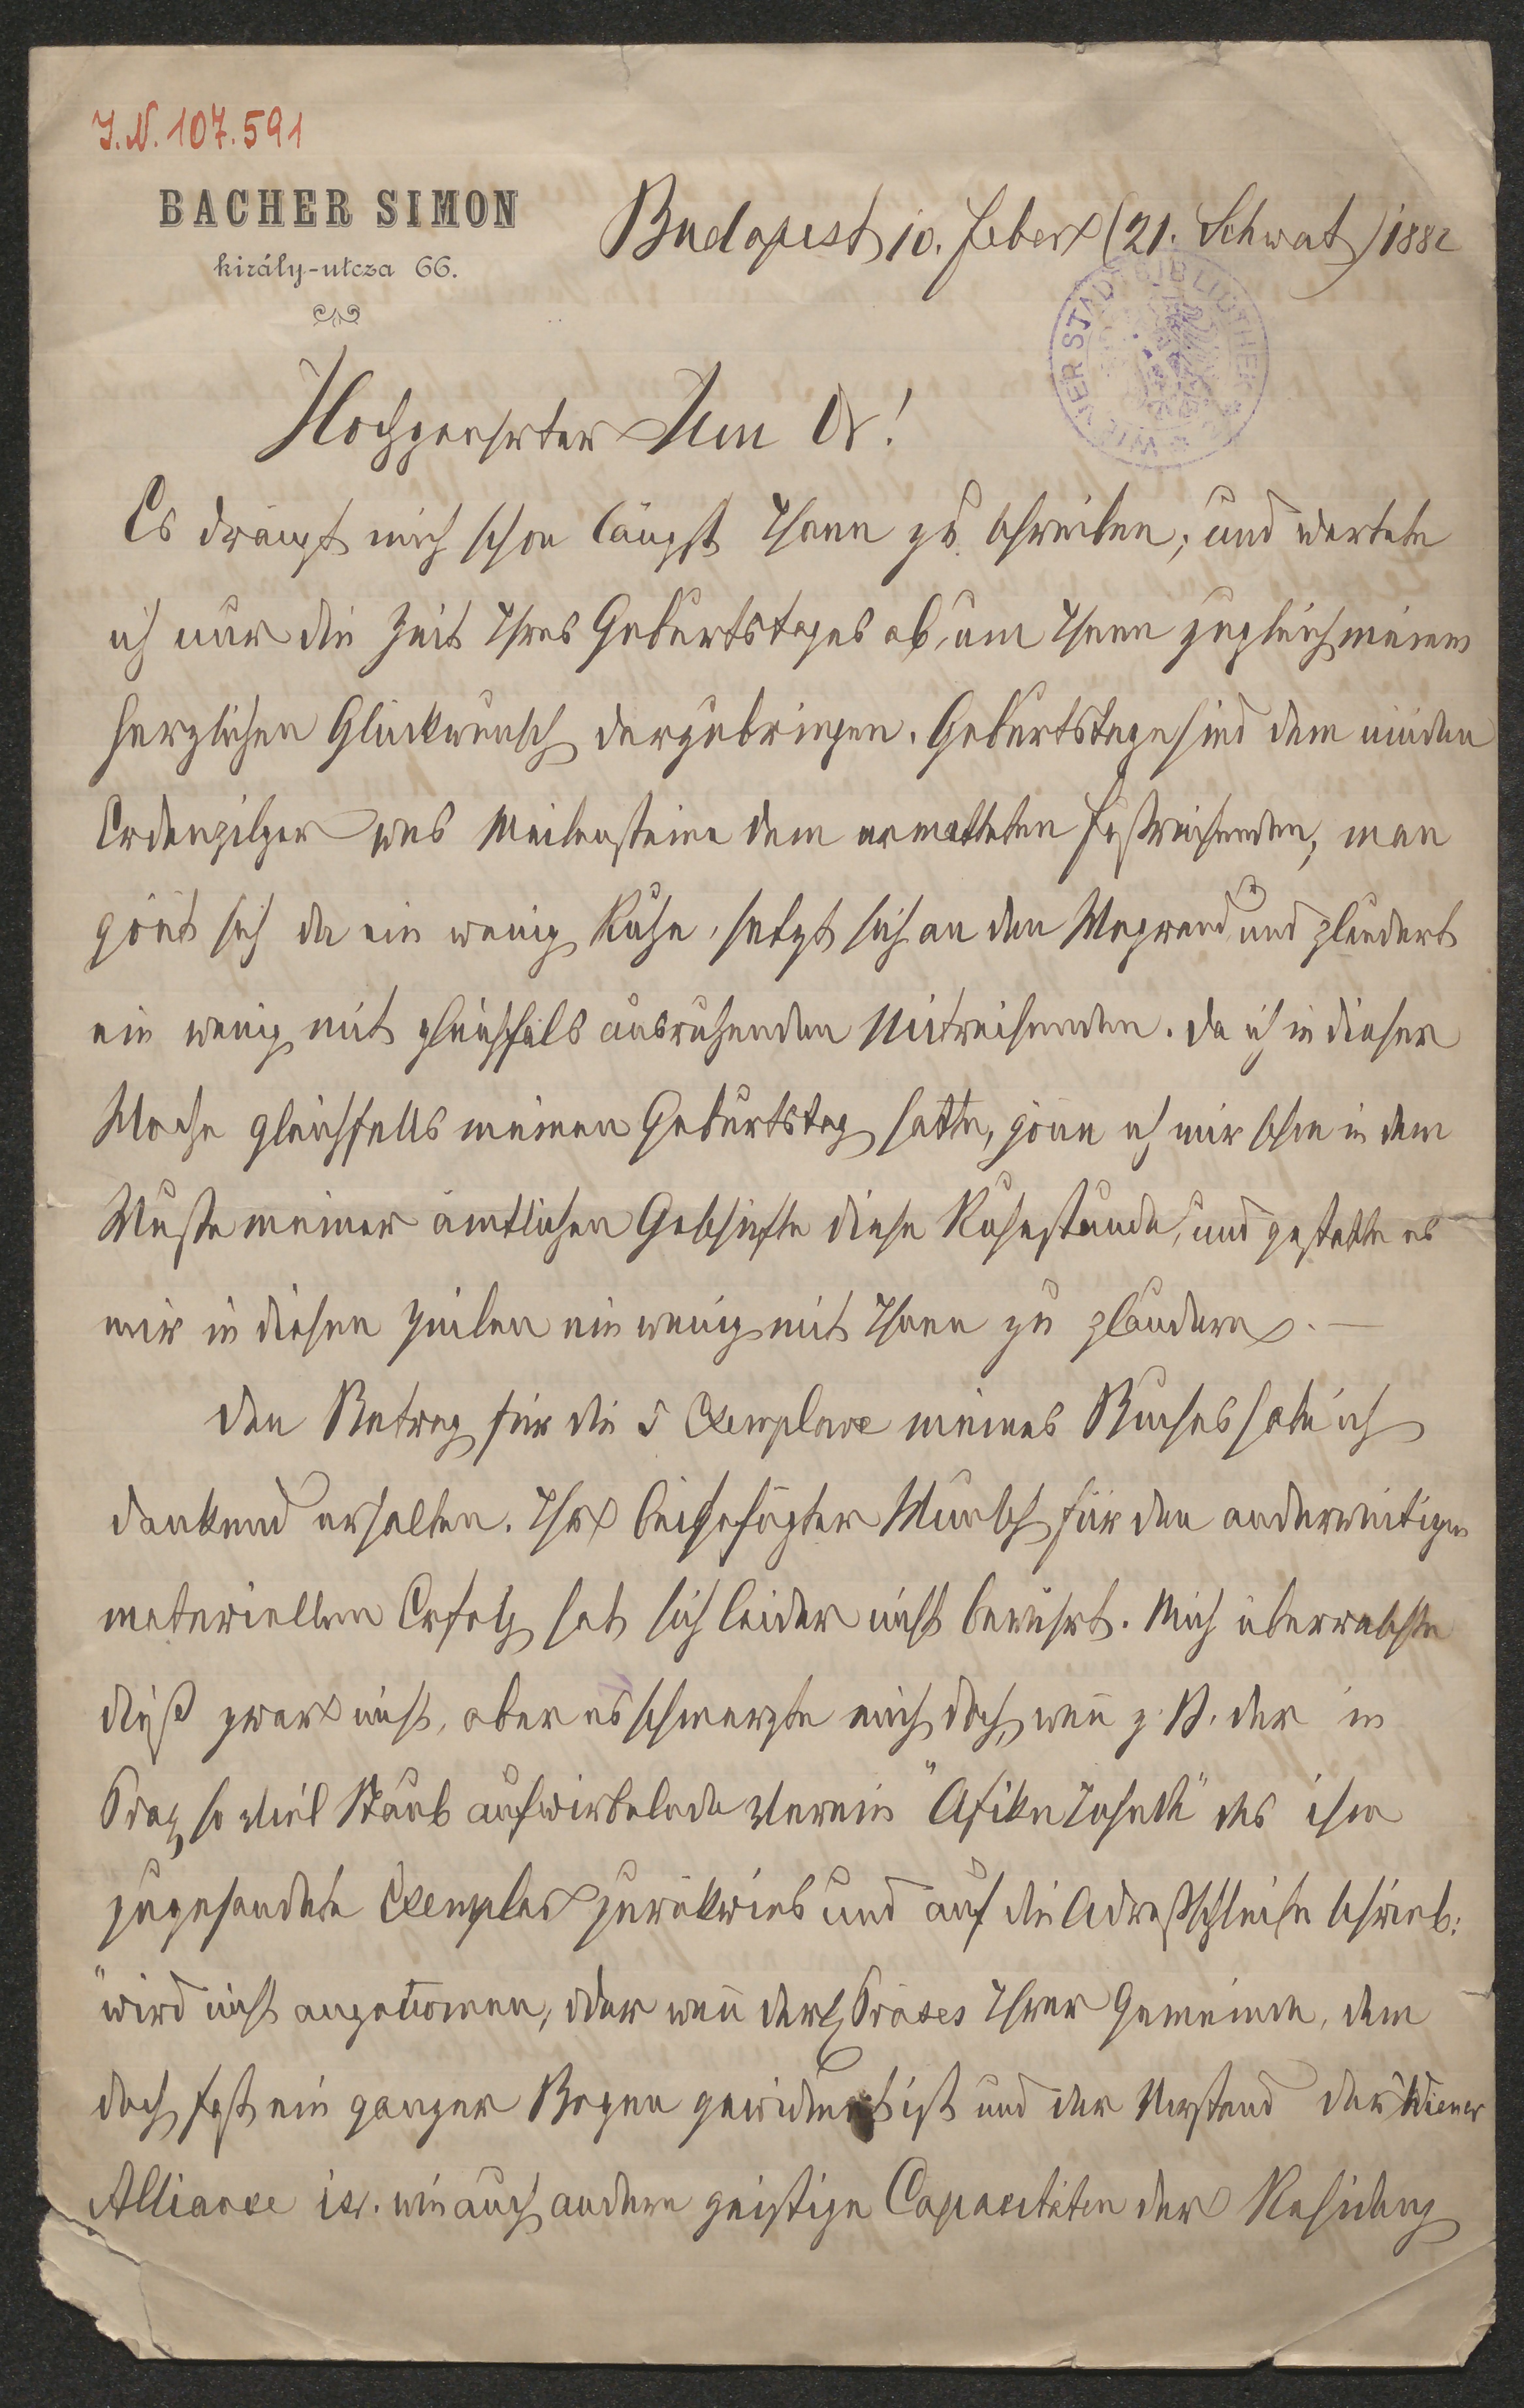 J.N. 107.591
BACHER SIMON
király-utcza 66.
Budapest 10. Feber (21. Schwat) 1882
WIENER STADTBIBLIOTHEK
Hochgeehrter Herr Dr!
Es drängt mich schon längst Ihnen zu schreiben; und wartete
ich nur die Zeit Ihres Geburtstages ab, um Ihnen zugleich meinen
herzlichen Glückwunsch darzubringen. Geburtstage sind dem müden
Erdenpilger was Meilensteine dem ermatteten Fußreisenden, man
gönt sich da ein wenig Ruhe, setzt sich an den Wegrand und plaudert
ein wenig mit gleichfals ausruhenden Mitreisenden. Da ich in dieser
Woche gleichfalls meinen Geburtstag hatte, gönne ich mir schon in dem
Wuste meiner ämtlichen Geschäfte diese Ruhestunde, und gestatte es
mir in diesen Zeilen ein wenig mit Ihnen zu plaudern. —
Den Betrag für die 5 Exemplare meines Buches habe ich
dankend erhalten. Ihr beigefügter Wunsch für den anderweitigen
materiellen Erfolg hat sich leider nicht bewährt. Mich überraschte
dieß zwar nicht, aber es schmerzte mich doch, wenn z. B. der in
Prag so viel Staub aufwirbelnde Verein "Afike Jehuda" das ihm
zugesandte Exemplar zurückwies und auf die Adreßschleife schrieb:
"wird nicht angenomen, oder wenn der Präses Ihrer Gemeinde, dem
doch fast ein ganzer Bogen gewidmet ist und der Vorstand der Wiener
Alliance isr. wie auch andere geistige Capacitäten der Residenz